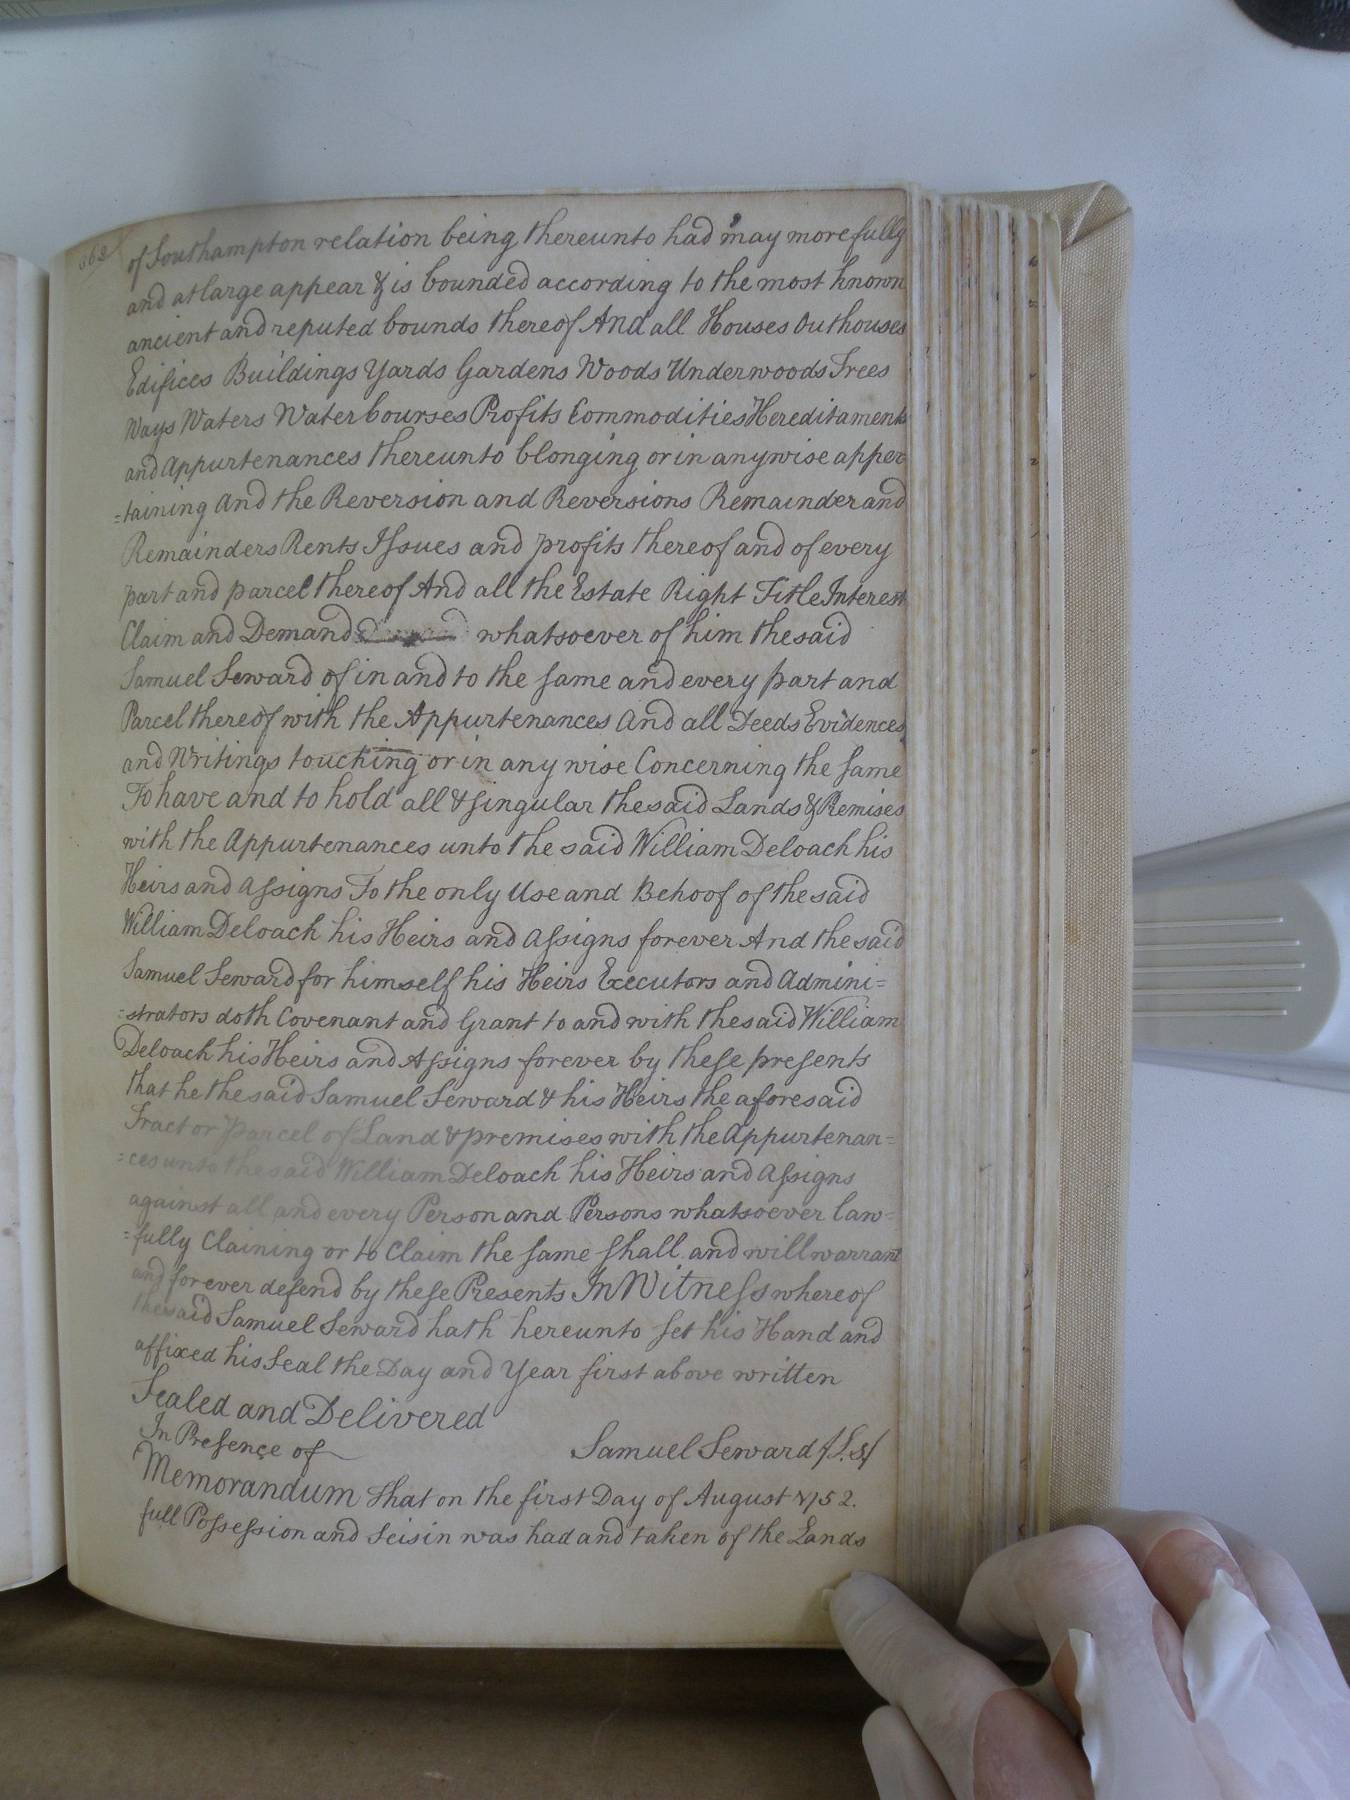 of Southampton relation being thereunto had may more fully
and at large appear & is bounded according to the most known
ancient and reputed bounds thereof And all Houses Outhouses
Edifices Buildings Yards Gardens Woods Underwoods Trees
Ways Waters Watercourses Profits Commodities Hereditaments
and Appurtenances thereunto blonging or in anywise apper
=taining And the Reversion and Reversions Remainder and
Remainders Rents Issues and profits thereof and of every
part and parcel thereof And all the Estate Right Title Interest
Claim and Demand whatsoever of him the said
Samuel Seward of in and to the same and every part and
Parcel thereof with the Appurtenances And all Deeds Evidences
and Writings touching or in any wise Concerning the same
To have and to hold all & singular the said Lands & Premises
with the Appurtenances unto the said William Deloach his
Heirs and Assigns To the only Use and Behoof of the said
William Deloach his Heirs and Assigns forever And the said
Samuel Seward for himself his Heirs Executors and Admini=
=strators doth Covenant and Grant to and with the said William
Deloach his Heirs and Assigns forever by these presents
that he the said Samuel Seward & his Heirs the aforesaid
Tract or Parcel of Land & premises with the Appurtenan=
=ces unto the said William Deloach his Heirs and Assigns
against all and every Person and Persons whatsoever law=
=fully Claining or to Claim the same shall and will warrant
and forever defend by these Presents In Witness whereof
the said Samuel Seward hath hereunto set his Hand and
affixed his Seal the Day and Year first above written
Sealed and Delivered
In Presence of
Samuel Seward (L.S)
Memorandum that on the first Day of August 1752.
full Possession and Seisin was had and taken of the Lands